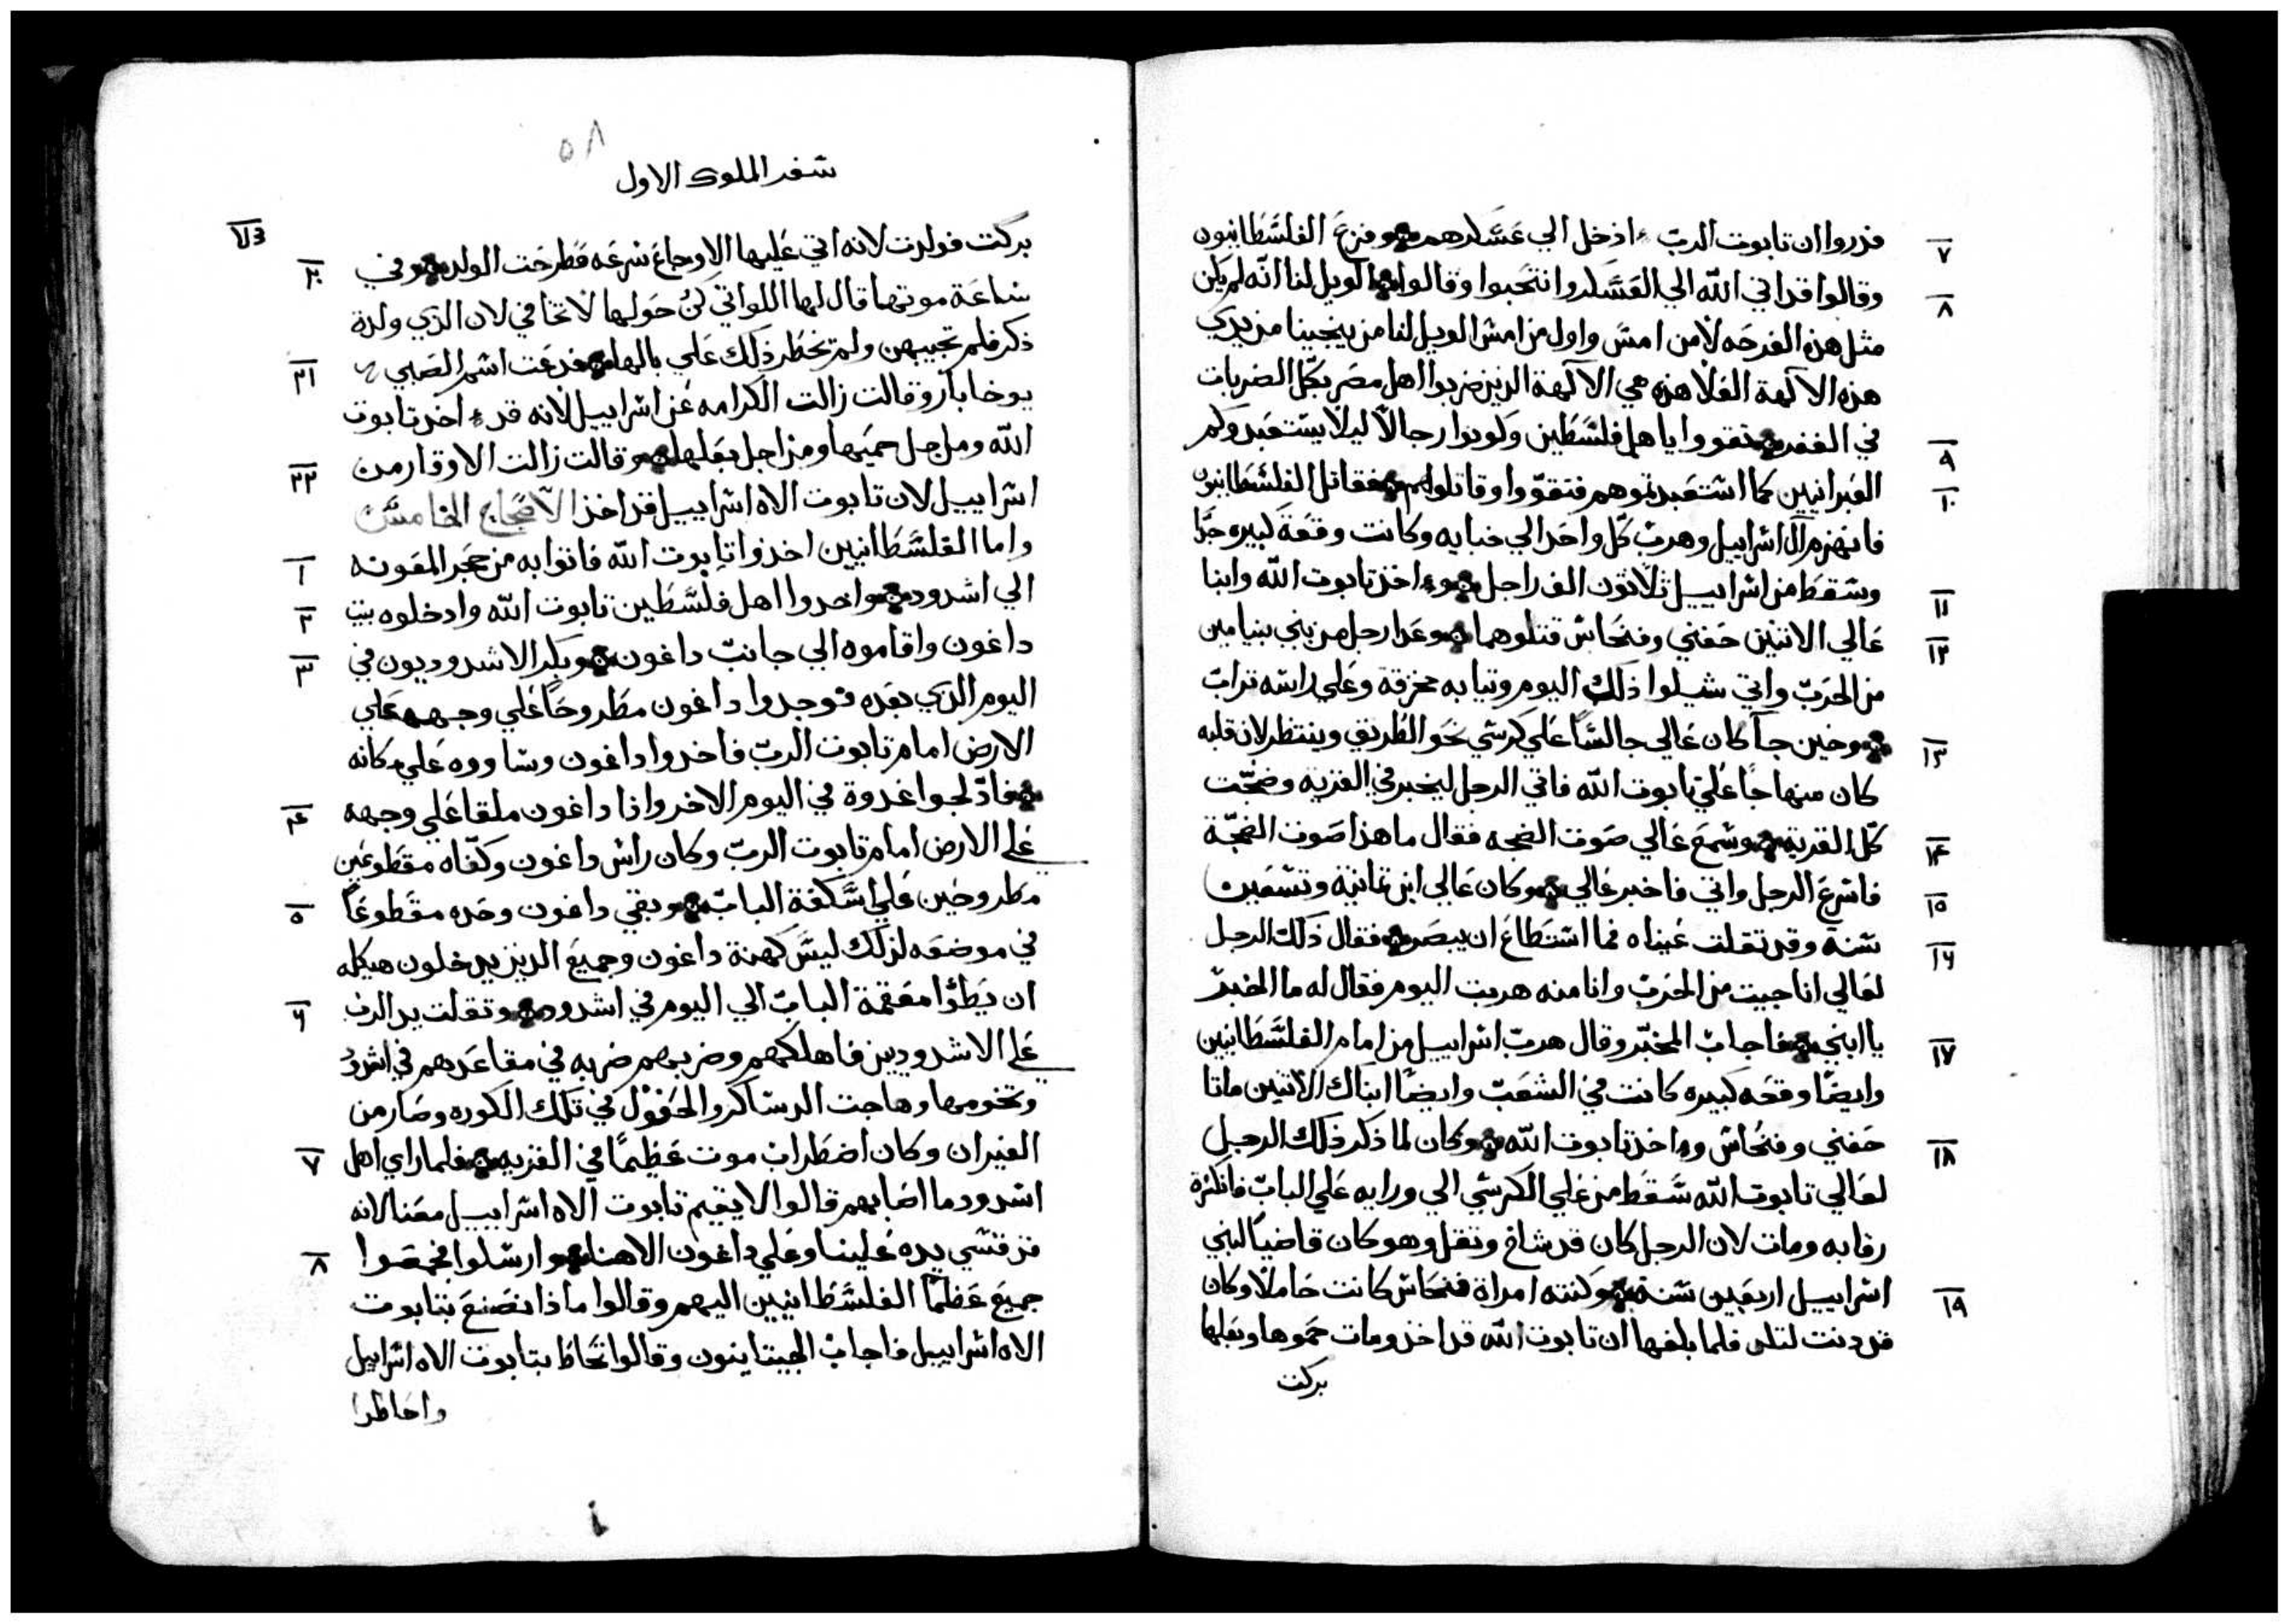 ٧ فدروا ان تابوت الربّ ادخل الي عسكرهم وفزع الفلسطانيون
٨ وقالوا قد اتي الله الي العسكر وانتحبوا وقالوا الويل لنا انه لم يكن
مثل هذه الفرحه لا من امس واول من امس الويل لنا من ينجينا من يدي
هذه الآلهة العلا هذه هي الآلهة الذين ضربوا اهل مصر بكل الضربات
٩ في القفر فتقووا يا اهل فلسطين وكونوا رجالاً ليلا يستعبدوكم
١٠ العبرانيين كما استعبدتموهم فتقوّوا وقاتلوهم فقاتل الفلسطانيون
فانهزم آل اسراييل وهرب كلّ واحد الي خبايه وكانت وقعة كبيره جدًا
١١ وسقط من اسراييل ثلاثون الف راجل واخذ تابوت الله وابنا
١٢ عالي الاثنين حفني وفنحاس قتلوهما وعدا رجل من بني بنيامين
من الحرب واتي شيلوا ذلك اليوم وثيابه مخرقة وعلي راسه تراب
١٣ وحين جآ كان عالي جالسًا علي كرسي نحو الطريق وينتظر لان قلبه
كان منهاجًا علي تابوت الله فاتي الرجل ليخبر في القرية وضجّت
١٤ كلّ القرية وسمع عالي صوت الضجه فقال ما هذا صوت الضجّة
١٥ فاسرع الرجل واتي فاخبر عالي وكان عالي ابن ثمانية وتسعين
١٦ سنه وقد تقلت عيناه فما استطاع ان يبصر فقال ذلك الرجل
لعالي انا جيت من الحرب وانا منه هربت اليوم فقال له ما الخبر
١٧ يا ابني فاجاب المخبّر وقال هرب اسراييل من امام الفلسطانيين
وايضًا وقعه كبيره كانت في الشعب وايضًا ابناك الاثنين ماتا
١٨ حفني وفنحاس واخذ تابوت الله وكان لما ذكر ذلك الرجل
لعالي تابوت الله سقط من علي الكرسي الي ورايه علي الباب فانكسرة
رقابه ومات لان الرجل كان قد شاخ وثقل وهو كان قاضيًا لبني
١٩ اسراييل اربعين سنة وكنته امراة فنحاس كانت حاملاً وكان
قد دنت لتلد فلما بلغها ان تابوت الله قد اخذ ومات حموها وبعلها
بركت
٥٨
سفر الملوك الاول
بركت فولدت لانه اتي عليها الاوجاع سرعه فطرحت الولد وفي
٢٠ ساعة موتها قال لها اللواتي كنّ حولها لا تخافي لان الذي ولدة
ذكر فلم تجيبهن ولم تخطر ذلك علي بالها فدعت اسم الصبي
٢١ يوخابار وقالت زالت الكرامه عن اسراييل لانه قد اخذ تابوت
الله ومن اجل حميها ومن اجل بعلها وقالت زالت الاوقار من
٢٢ اسراييل لان تابوت الاه اسراييل قد اخذ الاصحاح الخامس
١ واما الفلسطانيين اخذوا تابوت الله فاتوا به من حجر المعونه
٢ الي اشدود واخدوا اهل فلسطين تابوت الله وادخلوه بيت
٣ داغون واقاموه الي جانب داغون وبكر الاشدوديون في
اليوم الذي بعده فوجدوا داغون مطروحًا علي وجهه علي
الارض امام تابوت الربّ فاخدوا داغون وساووه علي مكانه
٤ فادّلجوا غدوة في اليوم الاخر واذا داغون ملقا علي وجهه
علي الارض امام تابوت الربّ وكان راس داغون وكفّاه مقطوعين
٥ مطروحين علي اسكفة الباب وبقي داغون وحده مقطوعًا
في موضعه لذلك ليس كهنة داغون وجميع الذين يدخلون هيكله
٦ ان يطؤا معقمة الباب الي اليوم في اشدود وتقلت يد الرب
علي الاشدوديين فاهلكهم وضربهم ضربه في مقاعدهم في اشدود
وتخومها وهاجت الدساكر والحقول في تلك الكوره وصار من
٧ الفيران وكان اضطراب موت عظيمًا في القريه فلما راي اهل
اشدود ما اصابهم قالوا لا يقيم تابوت الاه اسراييل معنا لانه
٨ قد قسي يده علينا وعلي داغون الاهنا وارسلوا فجمعوا
جميع عظما الفلسطانيين اليهم وقالوا ماذا نصنع بتابوت
الاه اسراييل فاجاب الجيتاينون وقالوا تحاط بتابوت الاه اسراييل
واحاطوا